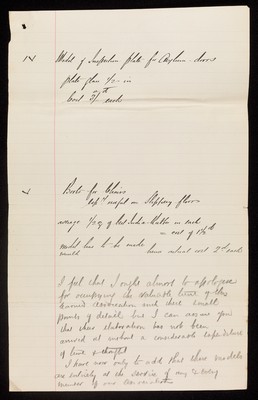 Model of Inspection plate for Asylum doors
plate glass 1/2 in
Cost 2/- each
Boots for Chairs
to prevent on slippery floors
average 1/2 oz of best India Rubber in each
= cost of
model has to be made have actual cost 2d each
I feel that I ought almost to apologize
for occupying the valuable time of the
Annual Association with these small
points of detail but I can assure you
that their elaboration has not been
arrived at without a considerable expenditure
of time & thought
I have now only to add that these models
are entirely at the service of any & every
member of our Association